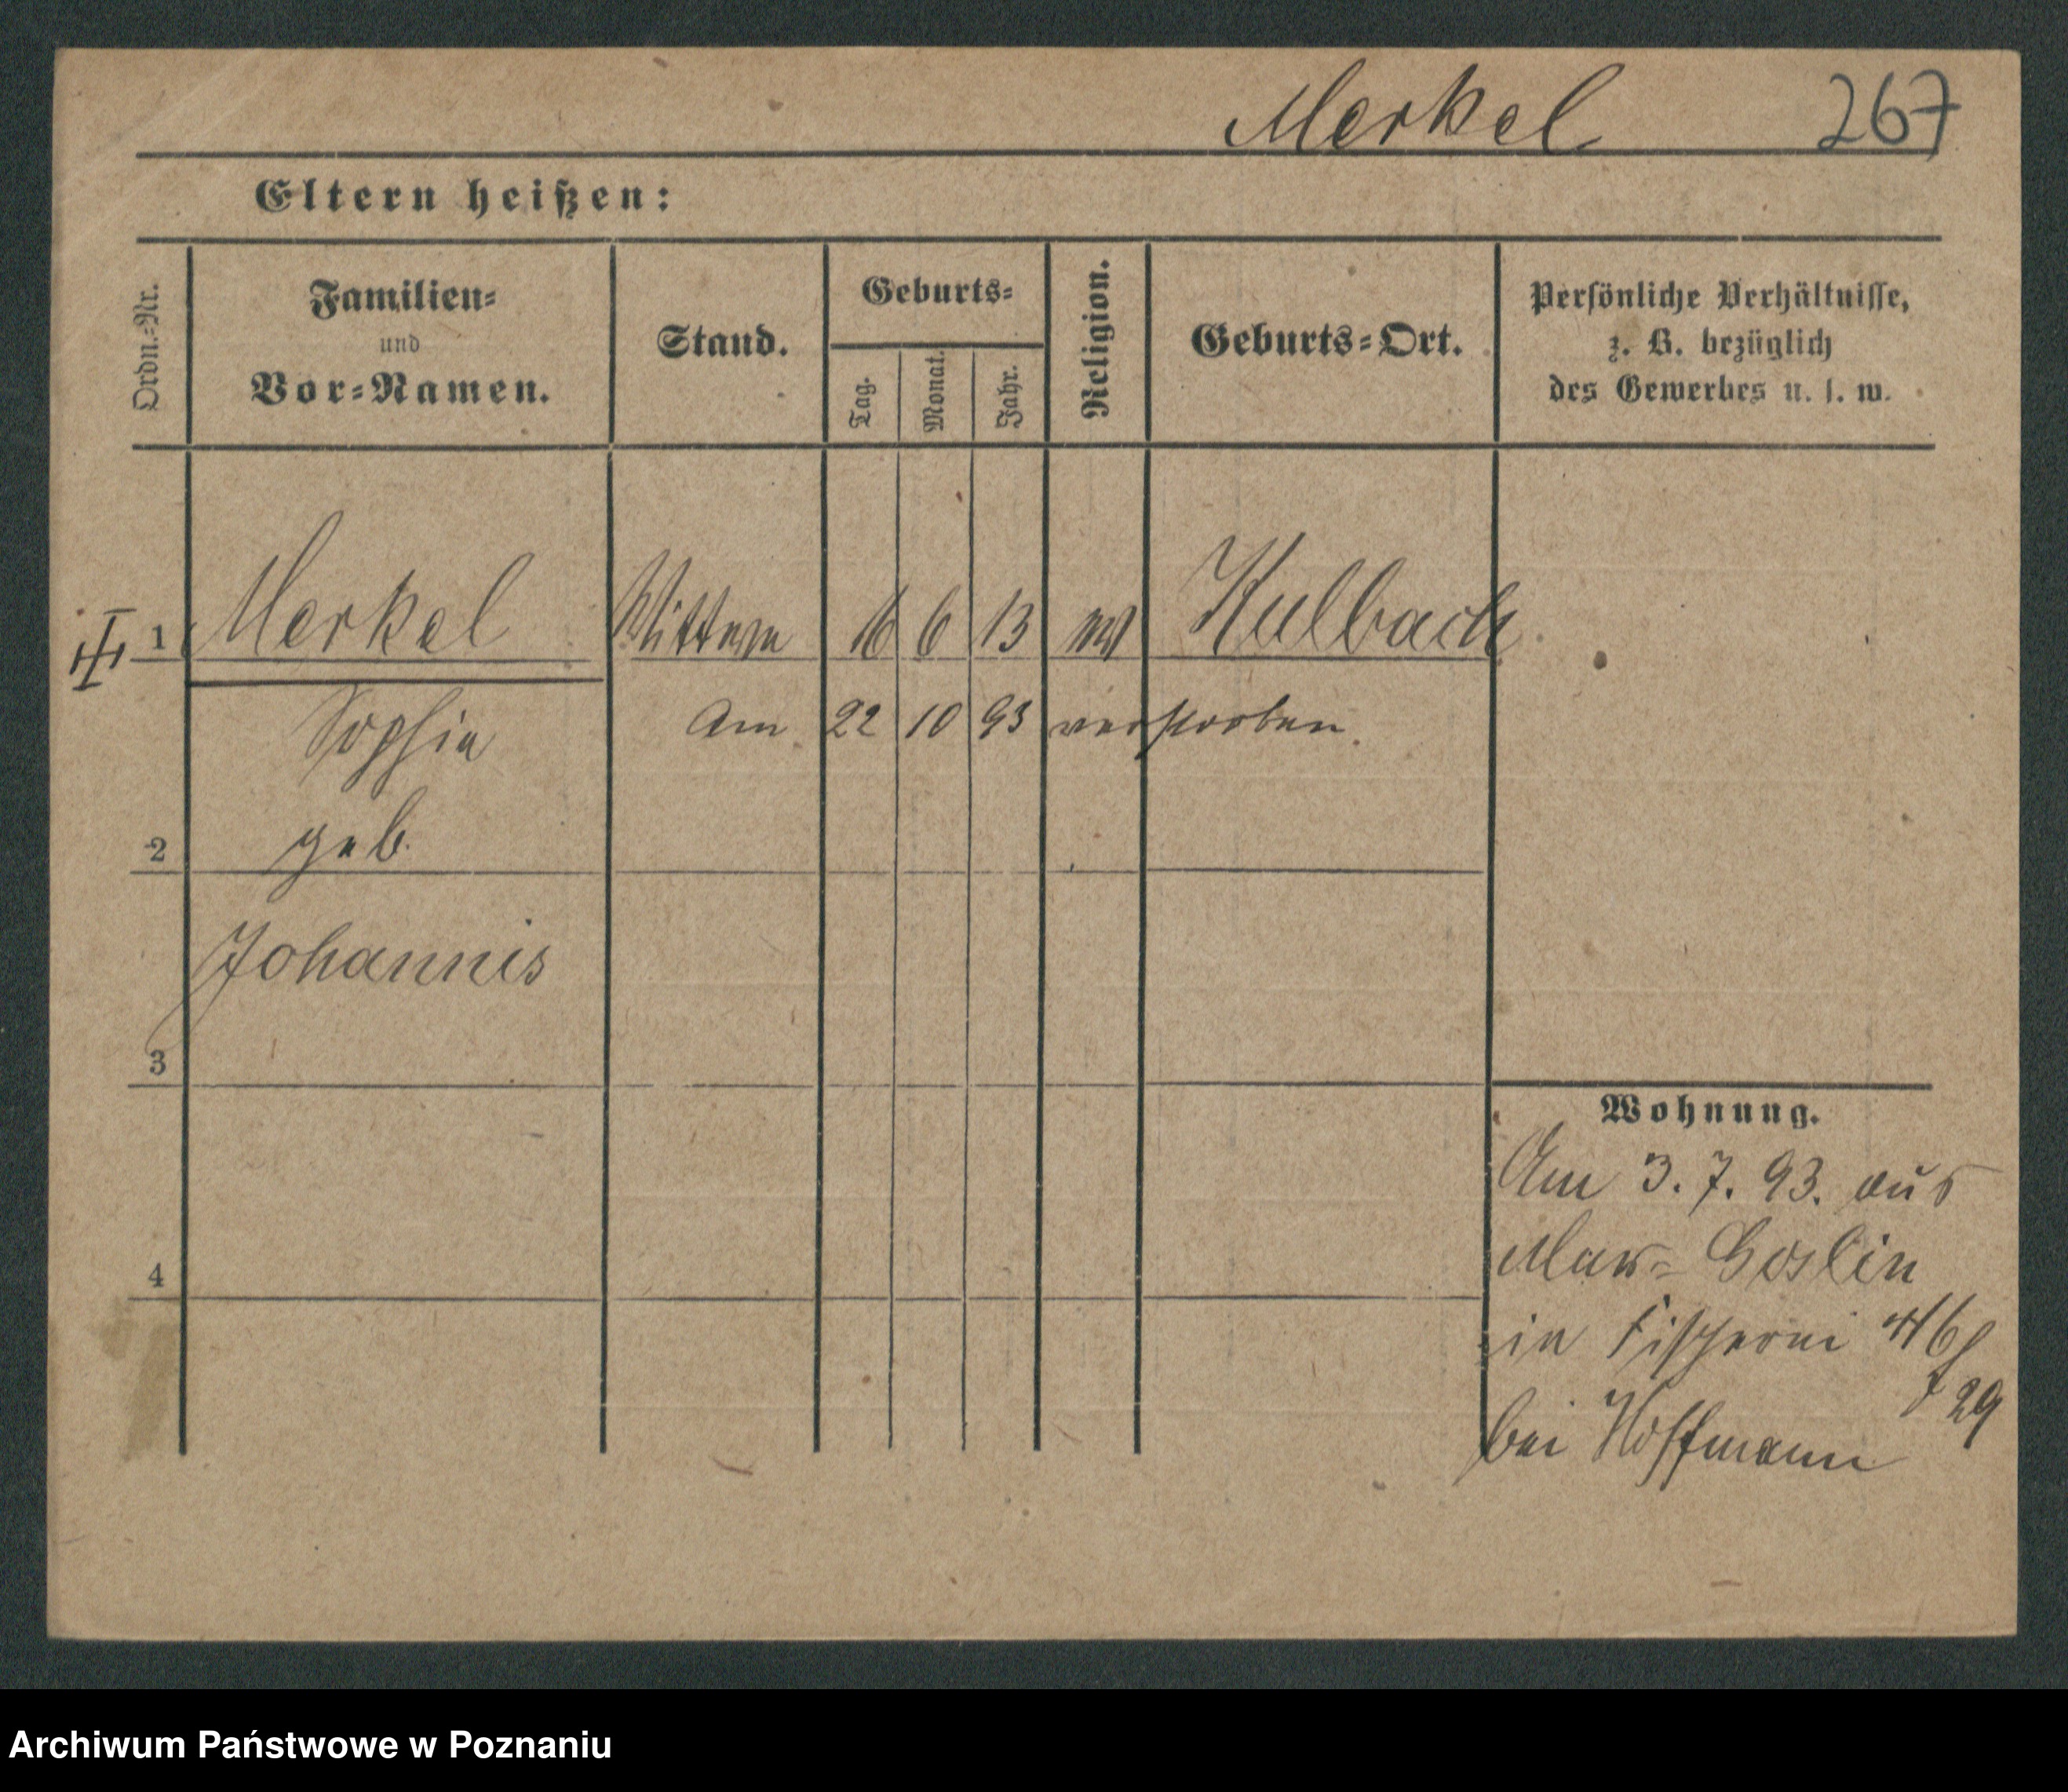 Merkel 267
Eltern heißen:
Ordn.=Nr.
Familien=
und
Vor=Namen.
Stand.
Geburts=
Tag.
Monat.
Jahr.
Religion.
Geburts=Ort.
Persönliche Verhältnisse,
z. B. bezüglich
des Gewerbes u. s. w.
1 Merkel Wittwe 16 6 13 Kulbach
Sophie Am 22 10 93 verstorben.
2 geb.
Johannis
3
4
Wohnung.
Am 3. 7. 93. aus
Mur=Goslin
in Fischerei 46
29
bei Hoffmann
Archiwum Państwowe w Poznaniu